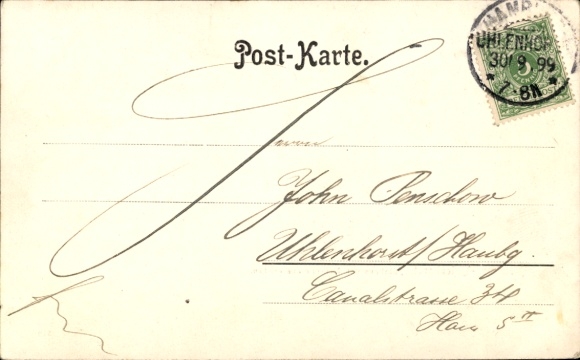 Post-Karte.
HAMBURG
UHLENHORST
30/9 99
* 7-8N *
Herrn
John Penschow
Uhlenhorst/Hambg.
Canalstrasse 34
Haus 5 II